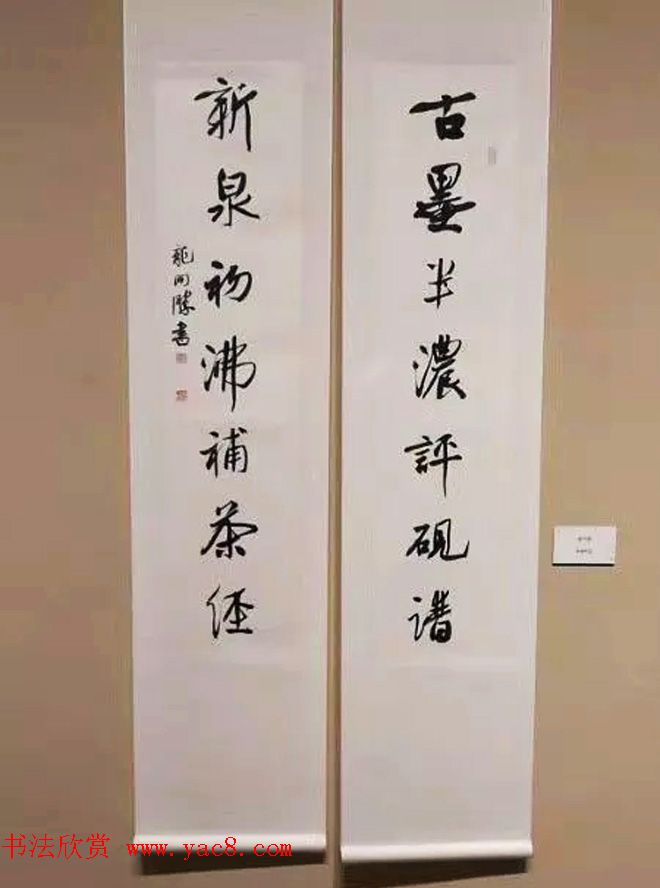 古墨半濃評硯譜
新泉初沸補茶经
龍開勝書
书法欣赏 www.yac8.com